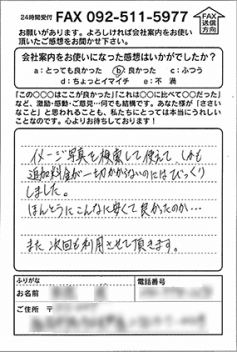 24時間受付 FAX 092-511-5977
FAX送信方向
お願いがあります。よろしければ会社案内をお使い
頂いたご感想をお聞かせ下さい。
会社案内をお使いになった感想はいかがでしたか?
a:とっても良かった b:良かった c:ふつう
d:ちょっとイマイチ e:不 満
「この○○はここが良かった」「これは○○に比べて○○だった」
など、激励・感動・ご意見…何でも結構です。あなた様が「ささい
なこと」と思われることも、私たちにとっては本当にうれしい
ことなのです。心よりお待ちしております!
イメージ写真を検索して使えて しかも
追加料金が一切かからないのにはびっくり
しました。
ほんとうにこんなに安くて良かったのか…
また次回も利用させて頂きます。
ふりがな
お名前
電話番号
ご住所 〒